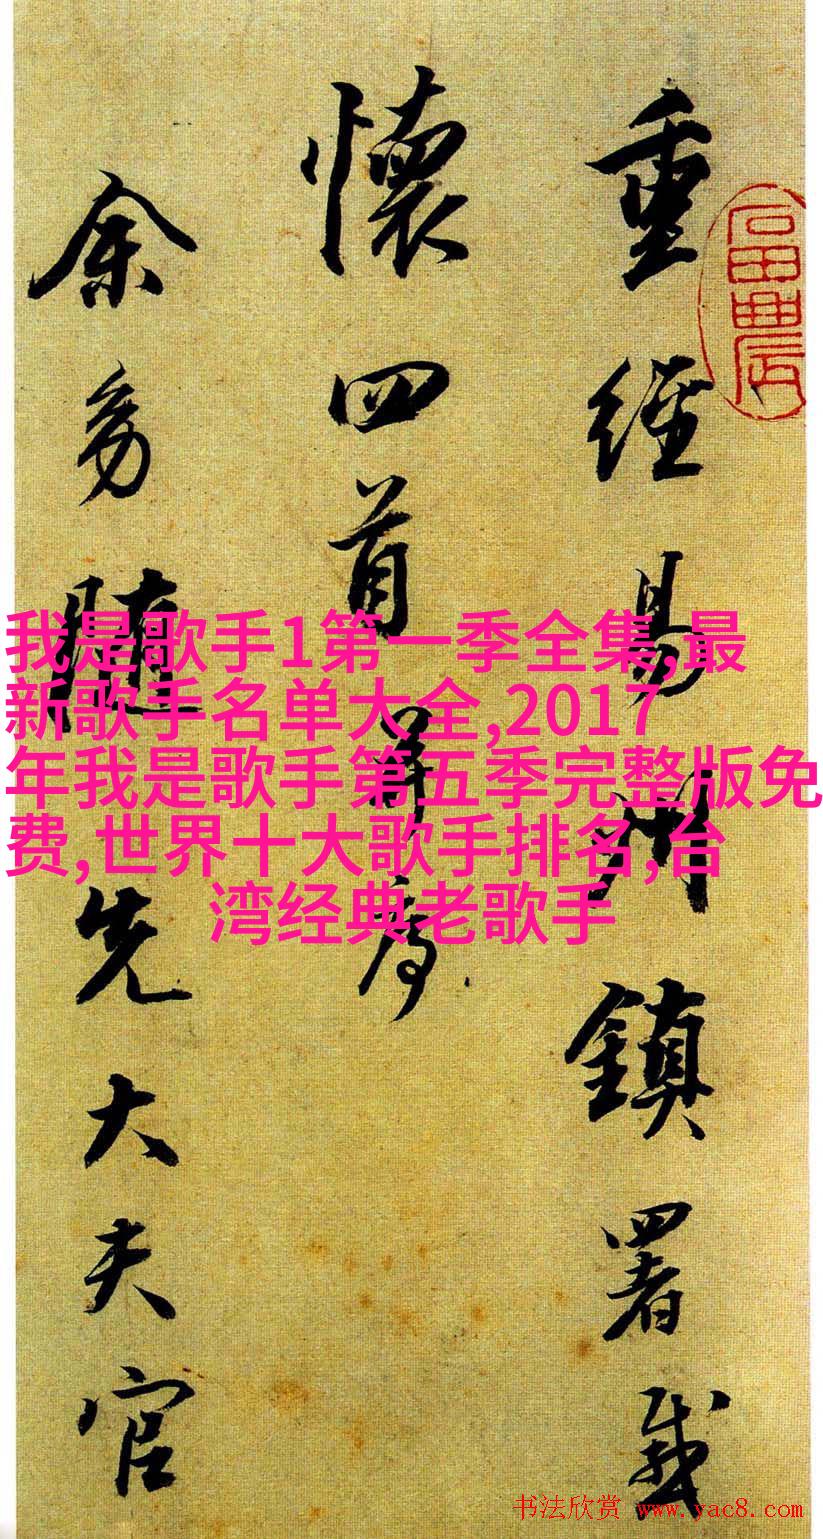 重經易州鎮署感
懷四首并序
余幼隨先大夫官
我是歌手1第一季全集,最
新歌手名单大全,2017
年我是歌手第五季完整版免
费,世界十大歌手排名,台
湾经典老歌手
书法欣赏 www.yac8.com